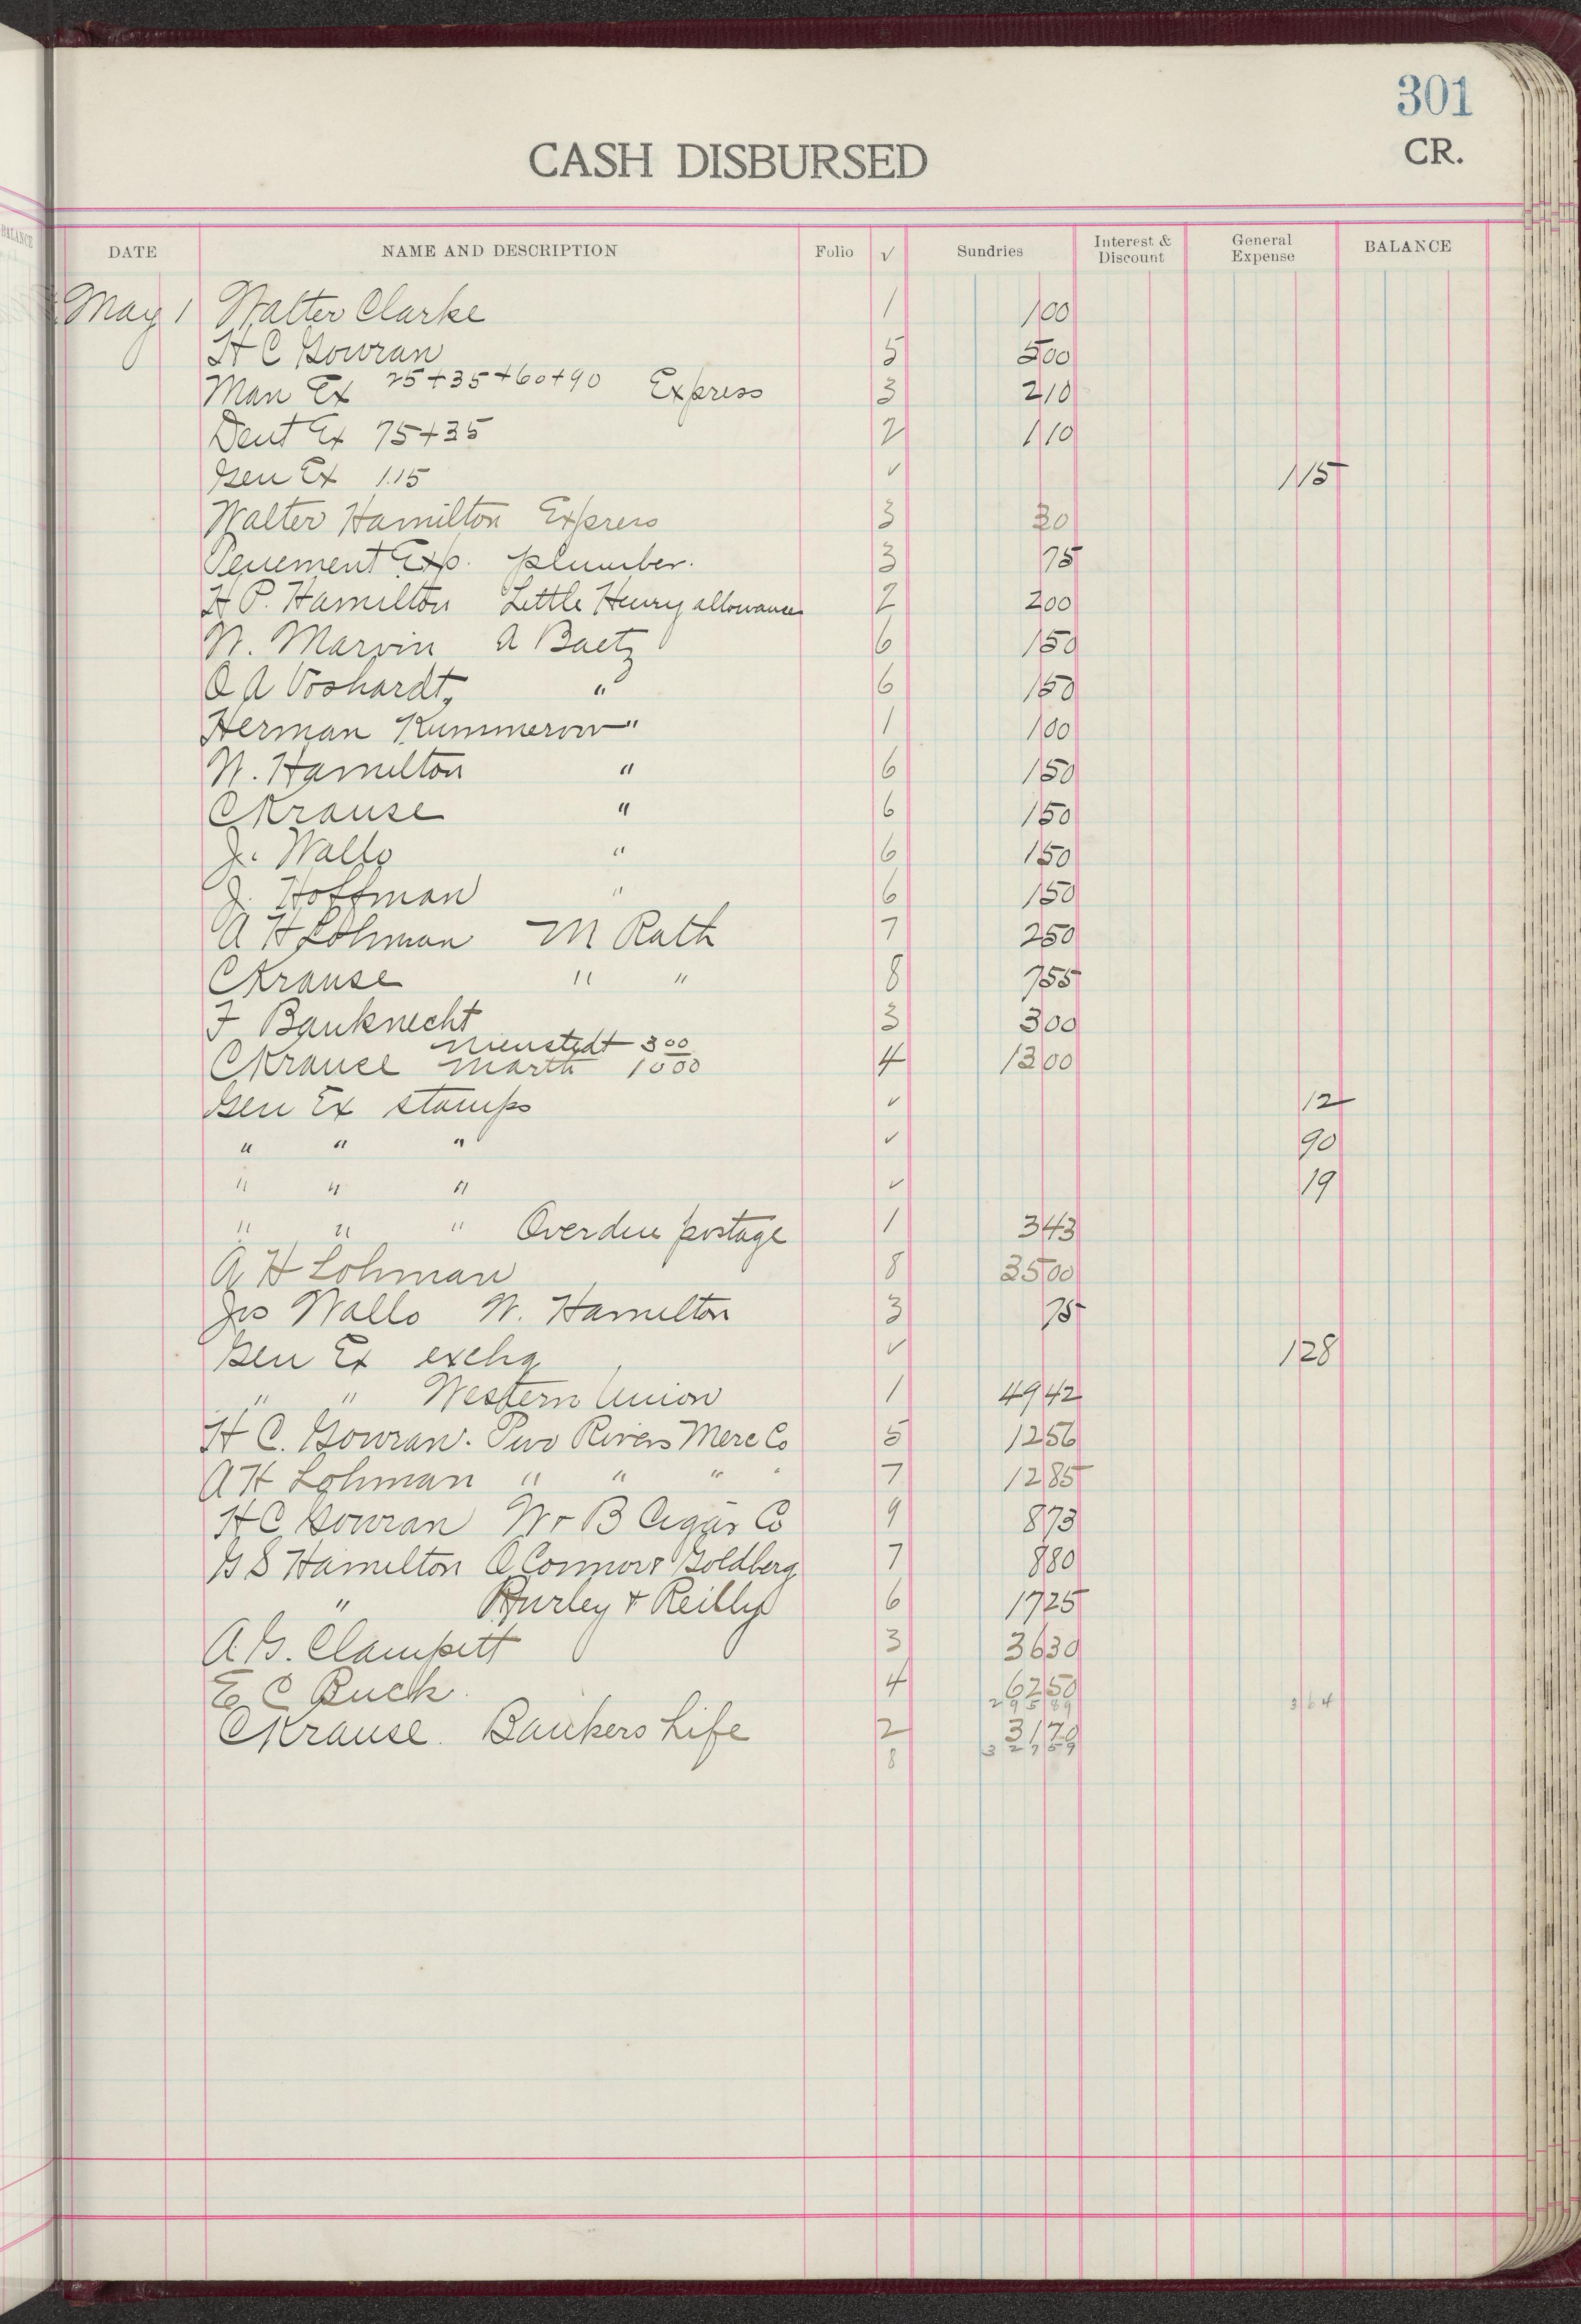 301
CR.
CASH DISBURSED
BALANCE
DATE NAME AND DESCRIPTION Folio √ Sundries Interest & Discount General Expense BALANCE
May 1 Walter Clarke 1 1 00
H C Gowran 5 5 00
Man Ex 25+35+60+90 Express 3 2 10
Dent Ex 75+35 2 1 10
Gen Ex 1.15 ✓ 1 15
Walter Hamilton Express 3 30
Tenement Exp. plumber. 3 75
H P. Hamilton Little Henry allowance 2 2 00
W. Marvin A Baetz 6 1 50
O A Voshardt, " 6 1 50
Herman Kummerow " 1 1 00
W. Hamilton " 6 1 50
C Krause " 6 1 50
J. Wallo " 6 1 50
J. Hoffman " 6 1 50
A H Lohman M Rath 7 2 50
C Krause " " 8 7 55
F Bauknecht 3 3 00
Nienstedt 3 00
C Krause Marth 10 00 4 13 00
Gen Ex stamps ✓ 12
" " " ✓ 90
" " " ✓ 19
" " " Overdue postage 1 3 43
A H Lohman 8 35 00
Jos Wallo W. Hamilton 3 75
Gen Ex exchg ✓ 1 28
" " Western Union 1 49 42
H C. Gowran. Two Rivers Merc Co 5 12 56
A H Lohman " " " " 7 12 85
H C Gowran W & B Cigar Co 9 8 73
G S Hamilton O Connor & Goldberg 7 8 80
" Hurley & Reilly 6 17 25
A. G. Clampett 3 36 30
E C Buck. 4 62 50
295 89 3 64
C Krause. Bankers Life 2 31 70
8 327 59